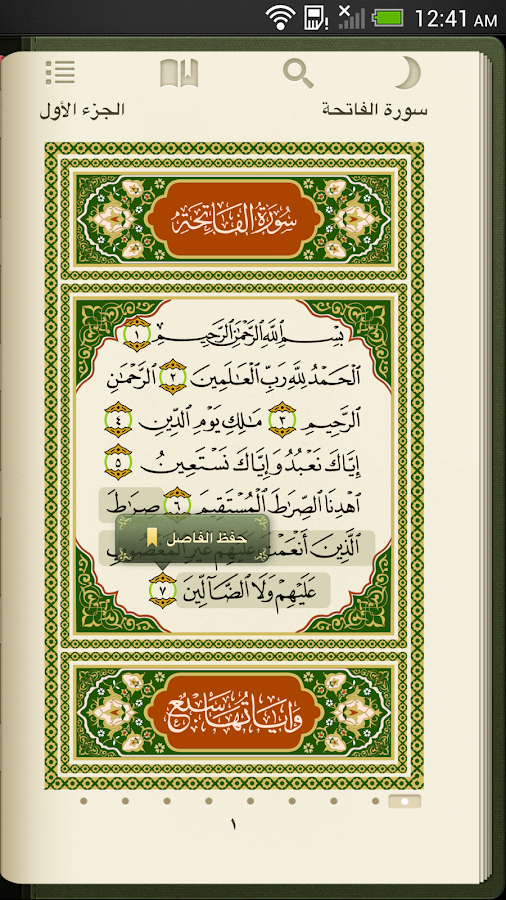 12:41 AM
سورة الفاتحة
الجزء الأول
سُورَةُ الْفَاتِحَةِ
بِسْمِ اللَّهِ الرَّحْمَٰنِ الرَّحِيمِ ١
الْحَمْدُ لِلَّهِ رَبِّ الْعَالَمِينَ ٢ الرَّحْمَٰنِ
الرَّحِيمِ ٣ مَالِكِ يَوْمِ الدِّينِ ٤
إِيَّاكَ نَعْبُدُ وَإِيَّاكَ نَسْتَعِينُ ٥
اهْدِنَا الصِّرَاطَ الْمُسْتَقِيمَ ٦ صِرَاطَ
حفظ الفاصل
الَّذِينَ أَنْعَمْتَ عَلَيْهِمْ غَيْرِ الْمَغْضُوبِ
عَلَيْهِمْ وَلَا الضَّالِّينَ ٧
وَآيَاتُهَا سَبْعٌ
١